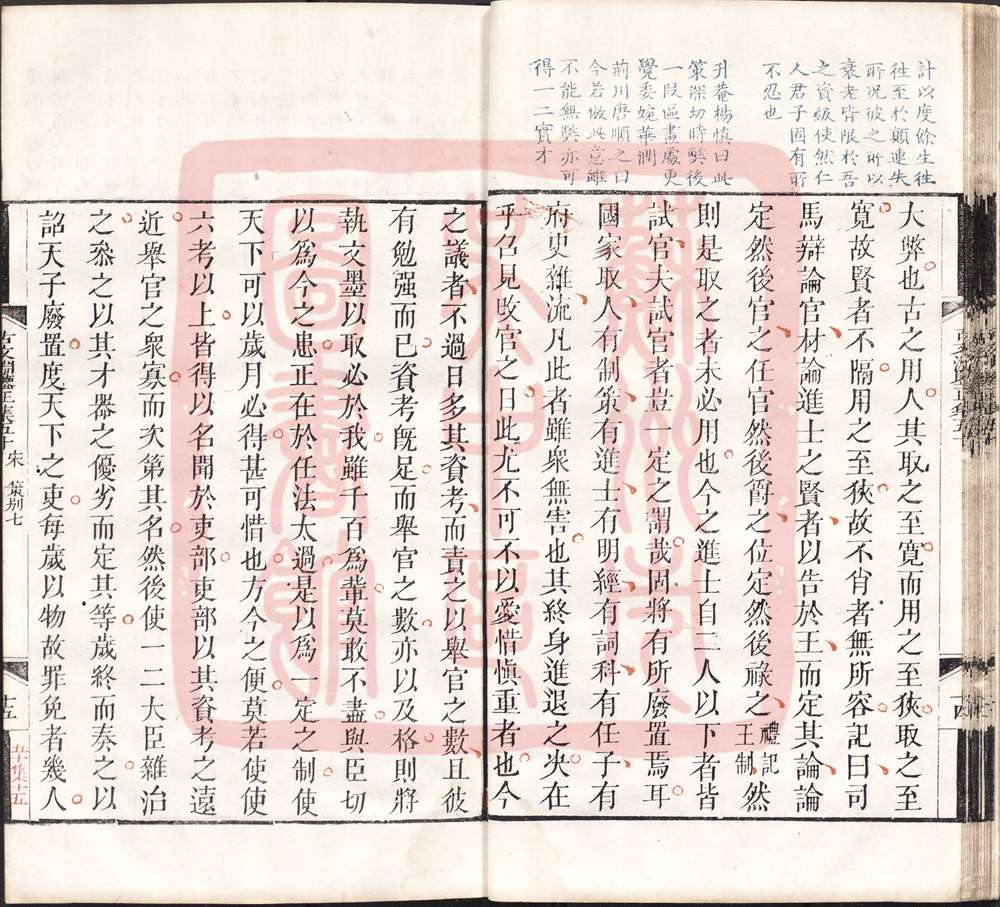 計以度餘生往
往至於顛連失
所况彼之所以
衰老皆限於吾
之資級使然仁
人君子固有所
不忍也
升菴楊慎曰此
策深切時弊後
一段區畫處更
覺委婉華潤
荊川唐順之曰
今若倣此意雖
不能無弊亦可
得一二實才
大弊也古之用人其取之至寬而用之至狹取之至
寬故賢者不隔用之至狹故不肖者無所容記曰司
馬辯論官材論進士之賢者以告於王而定其論論
定然後官之任官然後爵之位定然後祿之禮記王制然
則是取之者未必用也今之進士自二人以下者皆
試官夫試官者豈一定之謂哉固將有所廢置焉耳
國家取人有制策有進士有明經有詞科有任子有
府史雜流凡此者雖衆無害也其終身進退之决在
乎召見改官之日此尤不可不以愛惜慎重者也今
之議者不過日多其資考而責之以舉官之數且彼
有勉强而已資考旣足而舉官之數亦以及格則將
執文墨以取必於我雖千百爲輩莫敢不盡與臣切
以爲今之患正在於任法太過是以爲一定之制使
天下可以歲月必得甚可惜也方今之便莫若使使
六考以上皆得以名聞於吏部吏部以其資考之遠
近舉官之衆寡而次第其名然後使一二大臣雜治
之叅之以其才器之優劣而定其等歲終而奏之以
詔天子廢置度天下之吏每歲以物故罪免者幾人
古文淵鑒正集五十
宋
策別七
十五
五十集十五